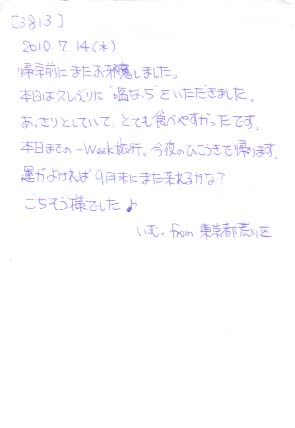 [3813]
2010.7.14(水)
帰京前にまたお邪魔しました。
本日は久しぶりに"塩なっち"をいただきました。
あっさりとしていて、とても食べやすかったです。
本日までの一Week旅行。今夜のひこうきで帰ります。
運がよければ9月末にまた来れるかな?
ごちそう様でした♪
いむ. from 東京都荒川区